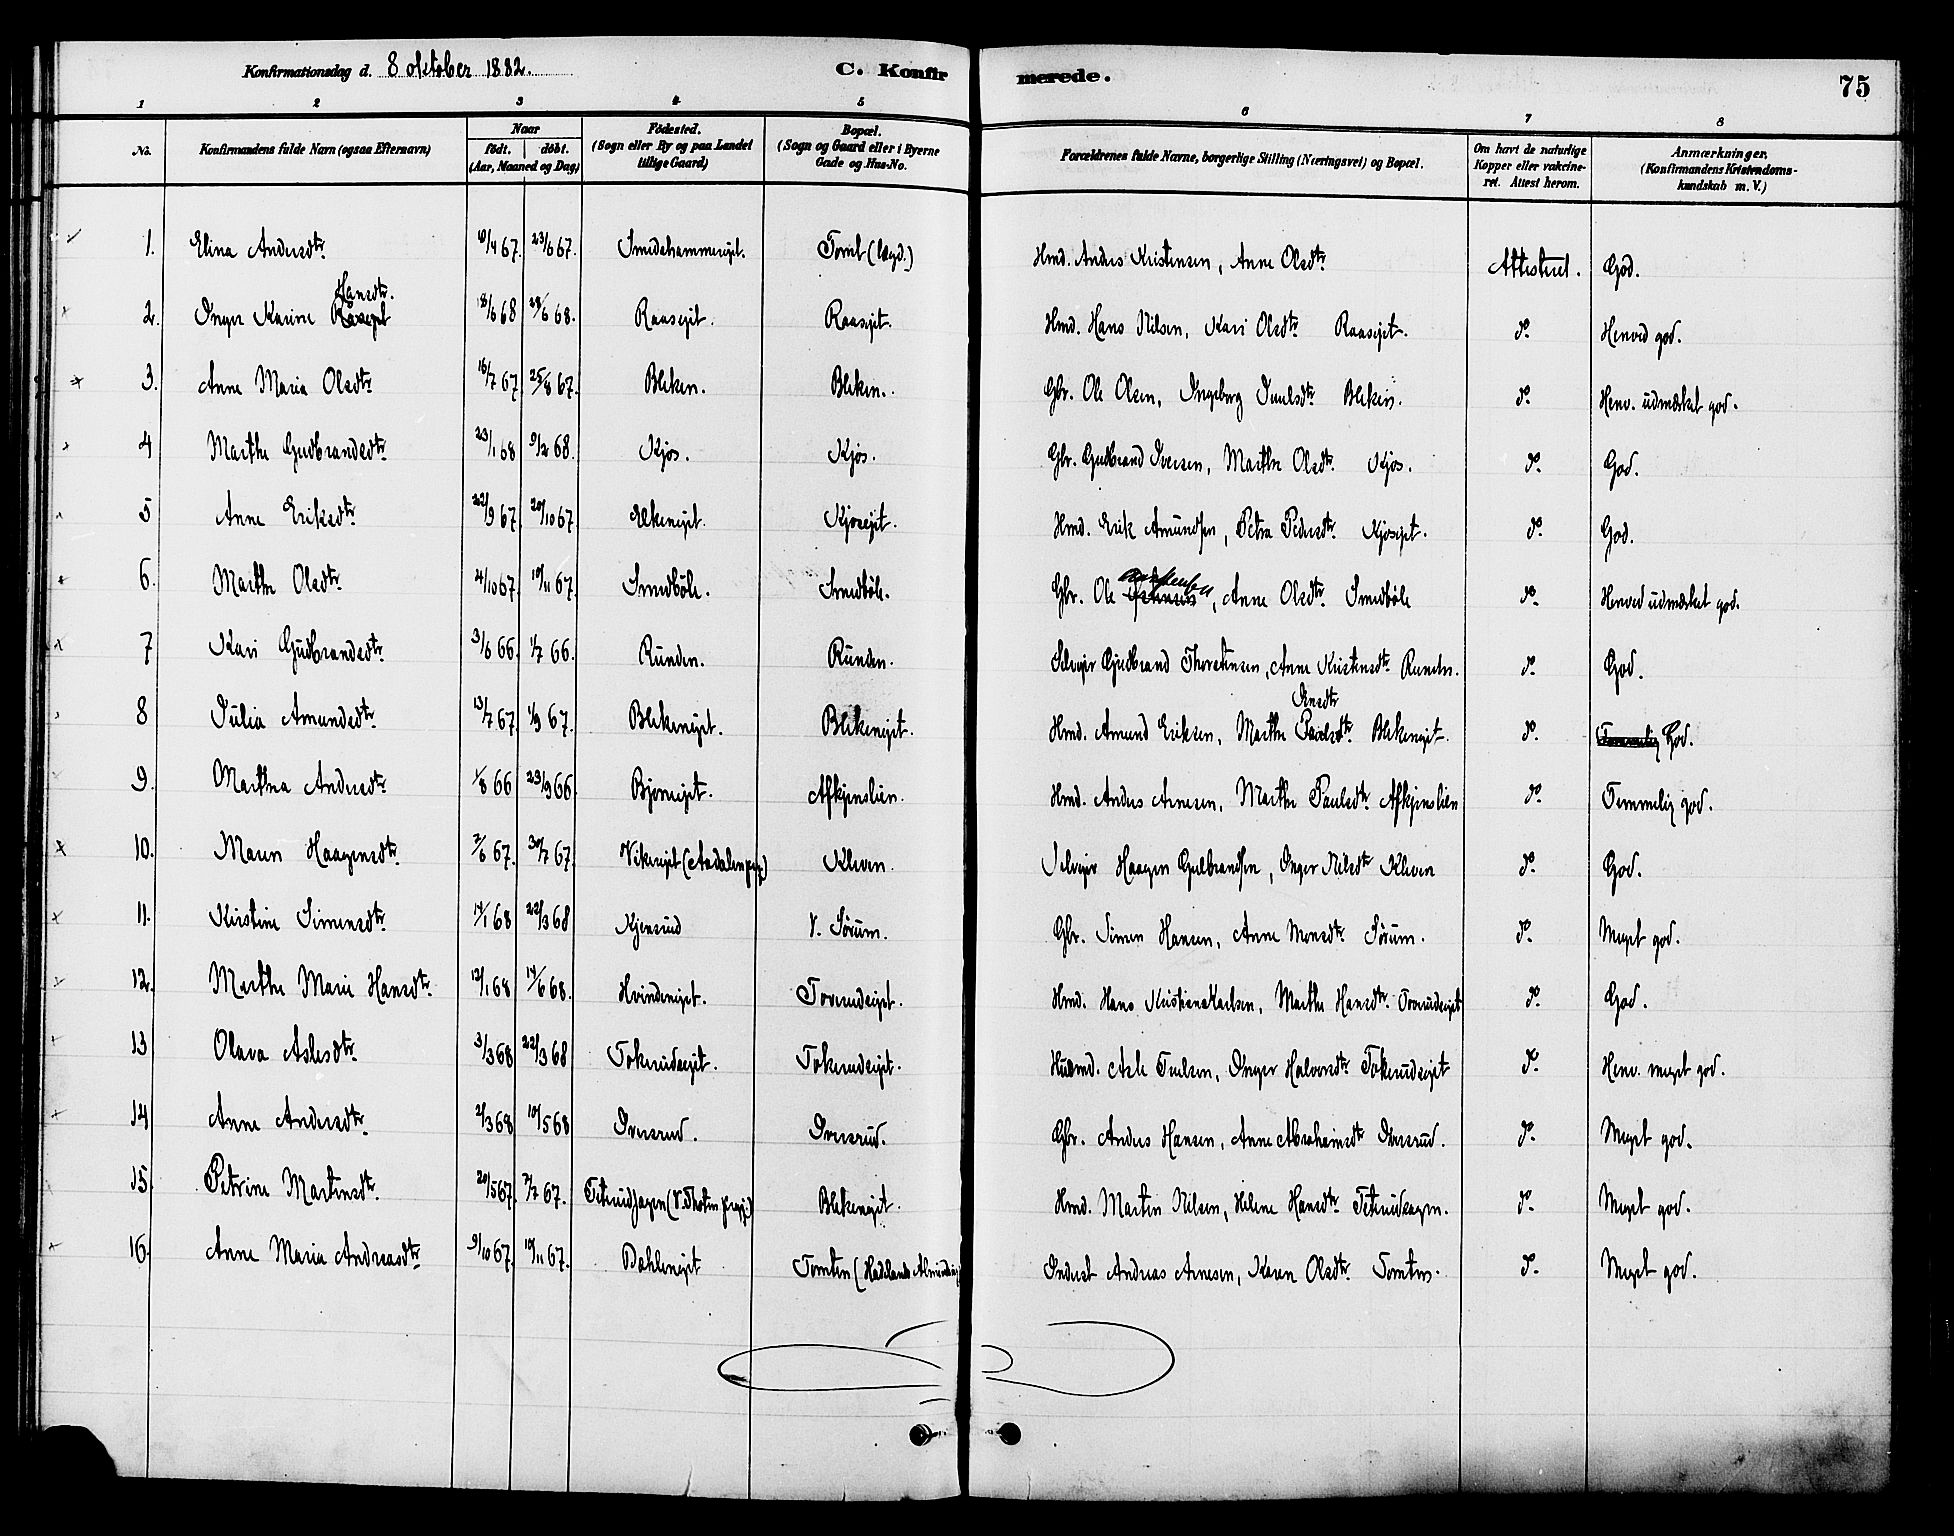 Konfirmationsdag d. 8 oktober 1882. C. Konfirmerede. 75
1 2 3 4 5 6 7 8
No. Konfirmandens fulde Navn (ogsaa Efternavn) Naar födt. döbt. (Aar, Maaned og Dag) Födested. (Sogn eller By og paa Landet tillige Gaard) Bopæl. (Sogn og Gaard eller i Byerne Gade og Hus-No. Forældrenes fulde Navne, borgerlige Stilling (Næringsvei) og Bopæl. Om havt de naturlige Kopper eller vakcineret. Attest herom. Anmærkninger. (Konfirmandens Kristendomskundskab m. V.)
1. Elina Andersdtr. 10/4 67. 23/6 67. Smedshammerejet. Tomt (lægd.) Hmd. Anders Kristensen, Anne Olsdtr Attesteret. God.
2. Inger Karine Hansdtr. 18/6 68 28/6 68. Raasejet. Raasejet. Hmd. Hans Nilsen, Kari Olsdtr Raasejet. do. Henved god.
3. Anne Maria Olsdtr. 16/7 67 25/8 67. Bleken. Bleken. Gbr. Ole Olsen, Ingeborg Juulsdtr. Bleken. do. Henv. udmærket god.
4 Marthe Gudbrandsdtr. 23/1 68 9/2 68. Kjos. Kjos. Gbr. Gudbrand Iversen, Marthe Olsdtr. Kjos. do. God.
5 Anne Eriksdtr. 22/9 67. 20/10 67. Kjosejet. Hmd. Erik Amundsen, Petra Pedersdtr. Kjosejet. do. God.
6. Marthe Olsdtr. 4/10 67. 10/11 67. Smedböle. Smedböle. Gbr. Ole , Anne Olsdtr. Smedböle do. Henved udmærket god.
7 Kari Gudbrandsdtr. 3/6 66. 1/7 66. Runden. Runden. Selvejer Gudbrand Thorstensen, Anne Kristensdtr. Runden. do. God.
8 Julia Amundsdtr. 13/7 67 1/9 67. Blekenejet. Blekenejet. Hmd. Amund Eriksen, Marthe Ensdtr Blekenejet. do. God.
9. Marthea Andersdtr. 1/8 66 23/9 66. Bjönnejet. Afkjænslien. Hmd. Anders Arnesen, Marthe Paulsdtr. Afkjænslien do. Temmelig god.
10. Maren Haagensdtr. 2/6 67. 30/7 67. Vikenejet (Aadalen prgj.) Kleven. Selvejer Haagen Gulbrandsen, Inger Nilsdtr Kleven do. God.
11. Kirstine Simensdtr. 14/1 68 22/3 68 Kjensrud V. Sörum. Gbr. Simen Hansen, Anne Monsdtr. Sörum. do. Meget god.
12. Marthe Marie Hansdtr. 12/1 68 14/6 68. Hvindenejet. Toverudejet. Hmd. Hans Kristian Karlsen, Marthe Hansdtr. Toverudejet do. God.
13 Olava Aslesdtr. 3/3 68 22/3 68 Tokerudsejet. Tokerudsejet. Husmd. Asle Truelsen, Inger Halvorsdtr. Tokerudsejet do. Henv. meget god.
14 Anne Andersdtr. 2/3 68 10/5 68 Iversrud. Iversrud. Gbr. Anders Hansen, Anne Abrahamsdtr Iversrud. do. Meget god.
15. Petrine Martinsdtr. 20/5 67. 7/7 67. (V. Thoten prgj.) Blekenejet. Hmd. Martin Nilsen, Helene Hansdtr do. Meget god.
16. Anne Maria Andreasdtr 9/10 67. 10/11 67. Dahlenejet Tomten (Hadelands Almenning) Inderst Andreas Arnesen, Karen Olsdtr. Tomten. do. Meget god.